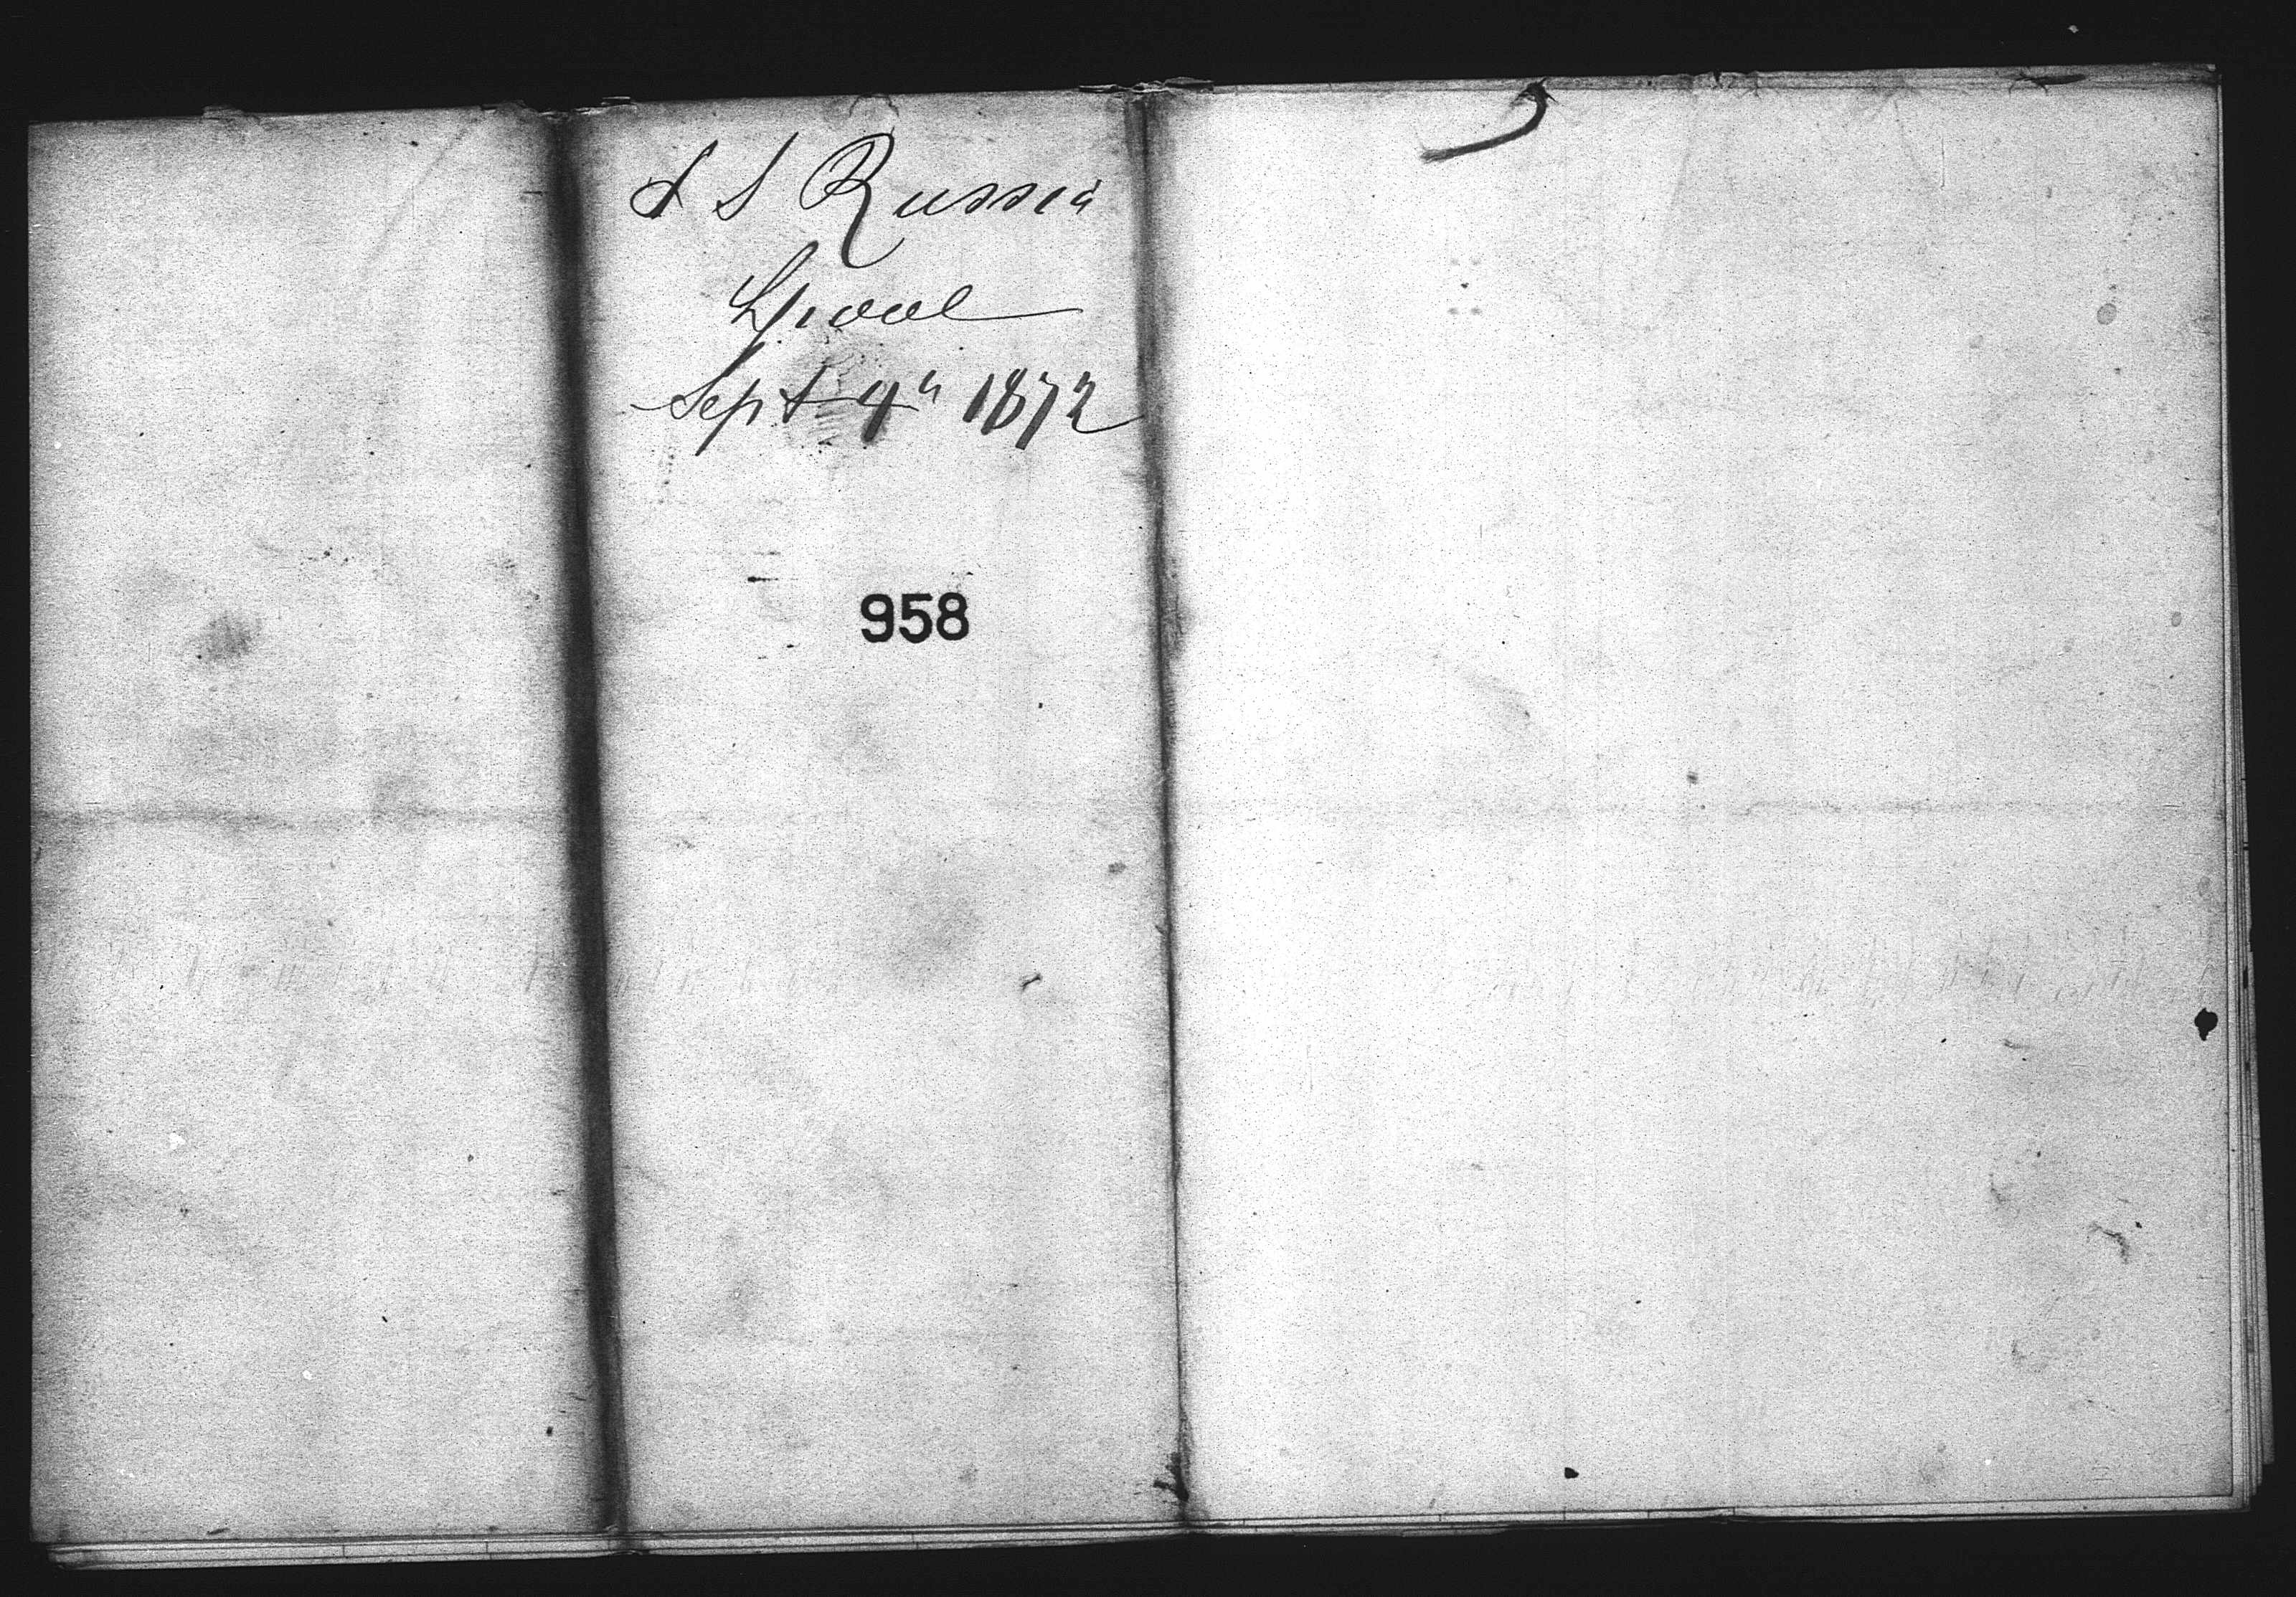 S S Russia
Lpool
Sept 4th 1872
958